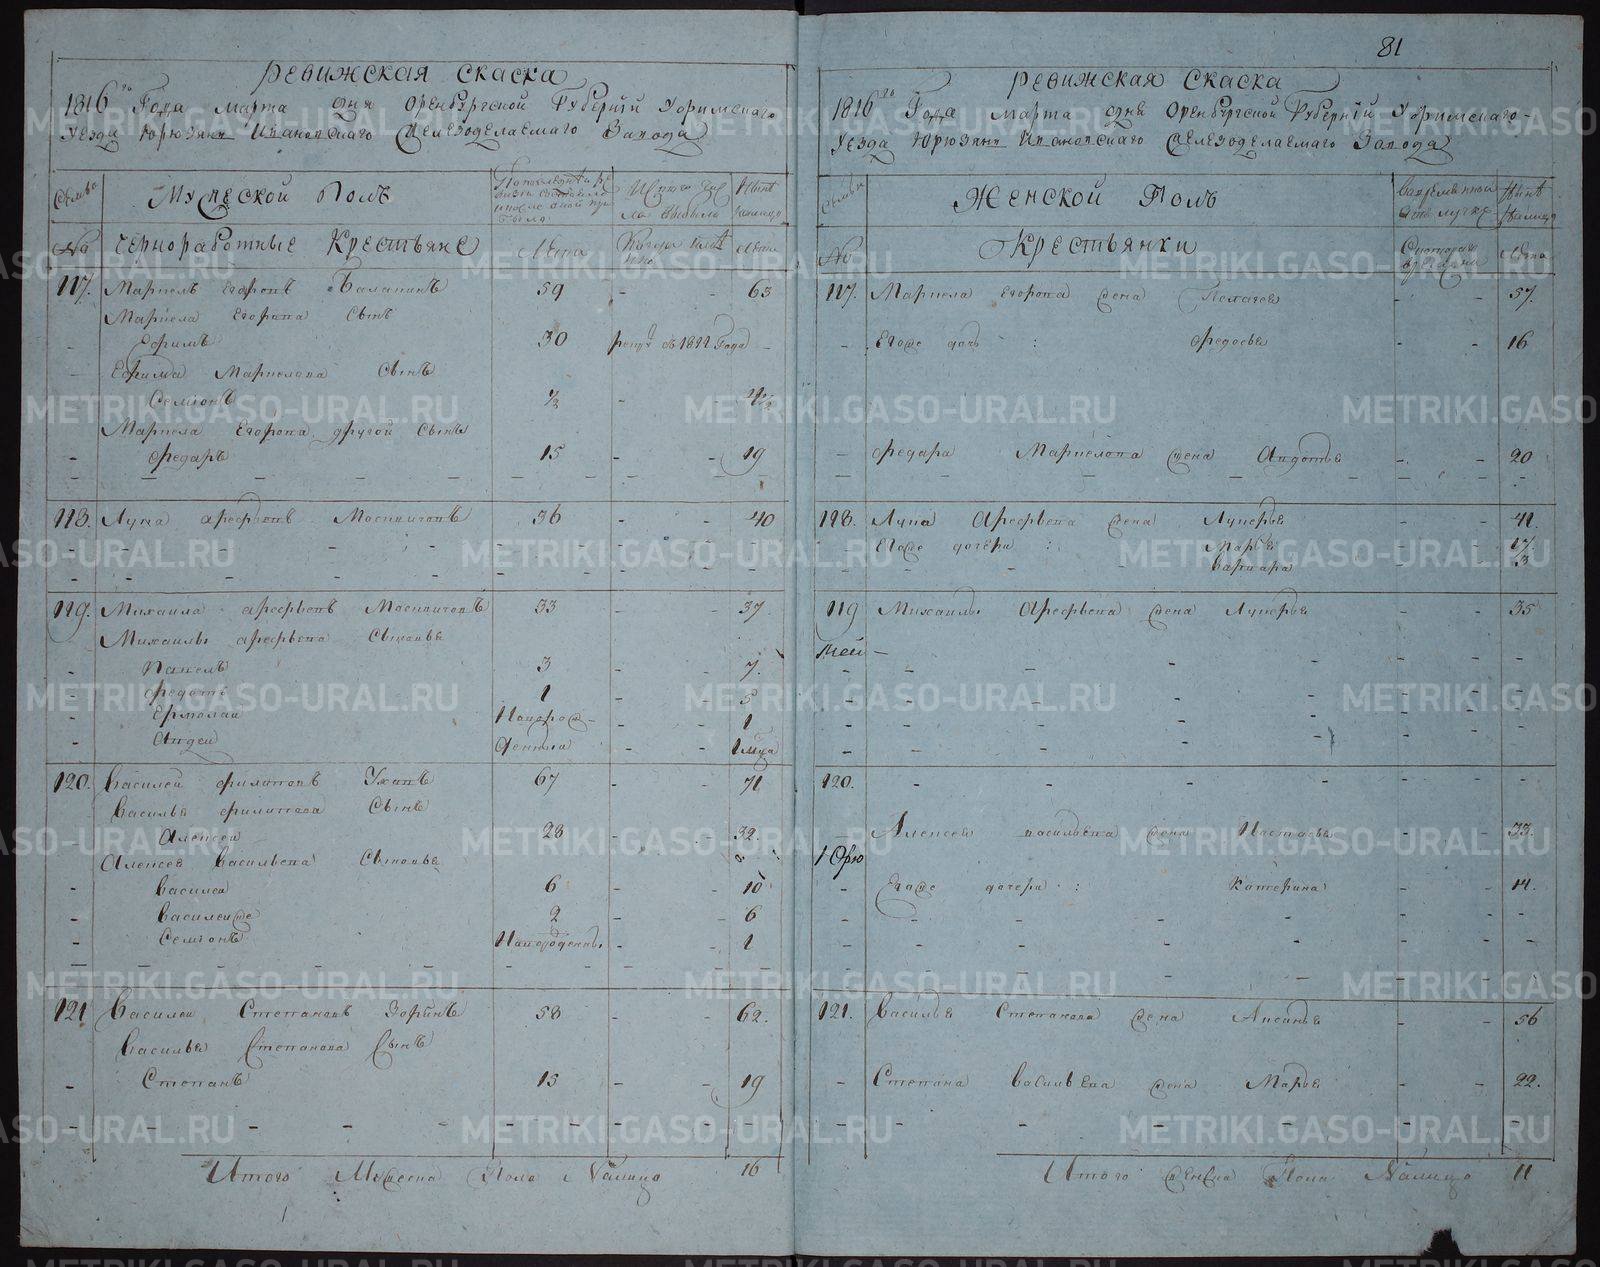 81
Ревижская скаска
1816го Года марта дня Оренбургской Губернїи Уфимскаго
Уезда Юрюзань Ивановскаго Железоделаемаго Завода
Семьи
Мужеской Полъ
По последней ревизи состояло и после оной прибыло
Ис того числа выбыло
Ныне налицо
No
Черноработные Крестьяне
Лета
Когда имянно
Лета
117. Маркелъ Егоровъ Балакинъ 59 - - 63
Маркела Егорова Сынъ
- Ефимъ 30 рекру въ 1812 Года -
Ефима Маркелова Сынъ
- Семїонъ ½ - - 4½
Маркела Егорова другой Сынъ
- Федаръ 15 - - 19
118. Лука Арефьевъ Москвитовъ 36 - - 40
119. Михаила Арефьевъ Москвитовъ 33 - - 37
Михаилы Арефьева Сыновье
- Павелъ 3 - - 7.
- Федотъ 1 - - 5
- Ермолай Новорож- - - 1
- Андей денныя - - 1 мца
120. Василей Филиповъ Ужавъ 67 71
Василья Филипова Сынъ
Алексей 28 - - 32.
Алексея Васильева Сыновье
- Василей 6 - - 10
- Василейже 2 - - 6
- Семїонъ Новорожденны - 1
121 Василей Степановъ Зорїнъ 58 - - 62.
Василья Степанова Сынъ
- Степанъ 15 - - 19
Итого Мужеска Пола Налицо 16
Ревижская Скаска
1816го Года марта дня Оренбургской Губернїи Уфимскаго-
Уезда Юрюзань Ивановскаго Железоделаемаго Завода
Семьи
Женской Полъ
Во временной отлучке
Ныне Налицо
No
Крестьянки
С которого времяни
Лета
117. Маркела Егорова жена Пелагея - - 57.
- Егоже дочь : Федосья - - 16
- Федара Маркелова жена Авдотья - - 20
118. Лука Арефьева жена Лукерья - - 41.
- Егоже дочери : Марья 17.
Варвара 3
119 Михаилы Арефьева жена Лукерья - - 35
120.
- Алексея васильева жена Настасья - - 33.
1 Орю
- Егоже дочери : Катерина - - 14.
121. Василья Степанова жена Аксинья - - 56
- Степана васильева жена Марья - - 22.
Итого женска Пола Налицо 11
METRIKI.GASO-URAL.RU